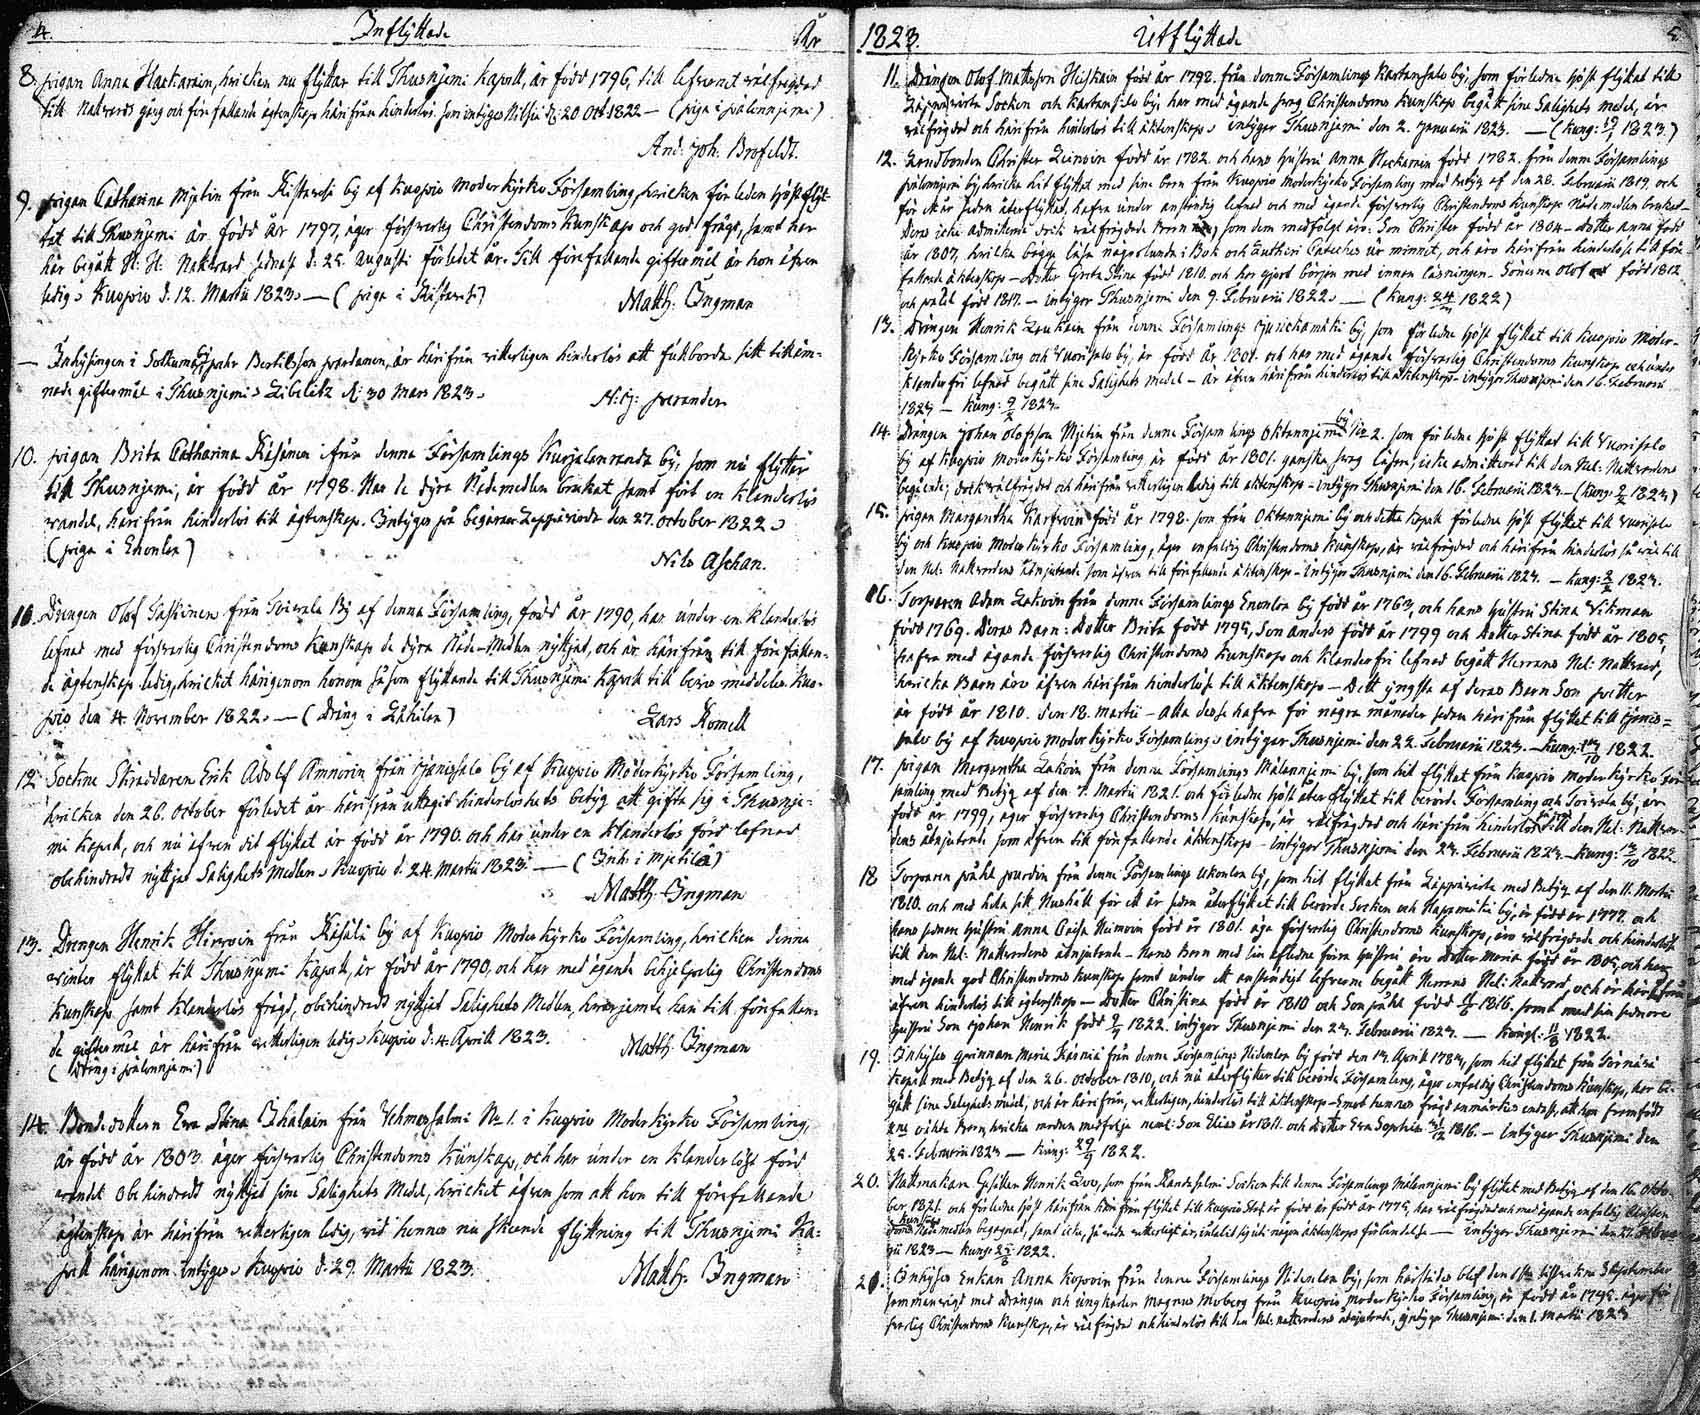 4. Inflyttade År
8. pigan Anna Hackarain, hvilken nu flyttar till Thusnjemi Kapell, är född 1796, till lefvernet välfrägdad
till Nattvards gång och förefallande ägtenskap härifrån hinderlös. Som intygas Nilsiä d: 20 Oct 1822 — (piga i palonnjemi)
And: Joh. Brofeldt.
9. pigan Catharina Mjetin från Ristavesi by af Kuopio Moderkyrko Församling, hvilken förleden höst flyt-
tat till Thusnjemi är född år 1797, äger försvarlig Christendoms Kunskap och god frägd, samt har
här begått H: H: Nattvard sednast d: 25. Augusti förledit år. Till förefallande giftermål är hon äfven
ledig. Kuopio d. 12. Martii 1823. — (piga i Ristavesi)
Matth: Ingman
— Inhysingen i Sotkuma by, pehr Bertilsson pardanen, är härifrån vitterligen hinderlös att fullborda sitt tilläm-
nade giftermål i Thusnjemi. Libelitz d: 30 Mars 1823.
H: G: perander
10. pigan Brita Catharina Räsänen ifrån denna Församlings Kurjalanranda by, som nu flyttar
till Thusnjemi, är född år 1798. Har de dyra Nådemedlen brukat samt fört en klanderlös
vandel, härifrån hinderlös till ägtenskap. Intygas på begäran Leppävirta den 27. October 1822.
(piga i Enonlax)
Nils Aschan.
11. Drengen Olof Taskinen från Toivala By af denna Församling, född år 1790, har under en klanderlös
lefnad med försvarlig Christendoms Kunskap de dyra Nåde-Medlen nyttjat, och är härifrån till förefallan-
de ägtenskap ledig, hvilket härigenom honom såsom flyttande till Thusnjemi Kapell till bevis meddelas. Kuo-
pio den 4. November 1822. — (Dräng i Lähilax)
Lars Komell
12. Sockne Skräddaren Erik Adolf Amnorin från Hjanissalo by af Kuopio Moderkyrko Församling,
hvilken den 26. October förledet år härifrån uttagit hinderlöshets betyg att gifta sig i Thusnje-
mi Kapell, och nu äfven dit flyttat är född år 1790. och har under en klanderlös förd lefnad
obehindradt nyttjat Salighets Medlen. Kuopio d. 24 Martii 1823. — (Inh: i Mjetilä)
Matth. Ingman
13. Drengen Henrik Hirvoin från Räsälä by af Kuopio Moder Kyrko Församling, hvilken denna
vinter flyttat till Thusnjemi Kapell, är född år 1790, och har med ägande behjelpelig Christendoms
Kunskap samt klanderlös frägd, obehindradt nyttjat Salighets Medlen, hvarjemte han till förefallan-
de giftermål är härifrån vitterligen ledig. Kuopio d. 4. Aprill 1823.
(Dräng i palonnjemi)
Matth. Ingman
14. Bonde dottern Eva Stina Ihalain från Vehmersalmi No 1. i Kuopio Moderkyrko Församling,
är född år 1803. äger försvarlig Christendoms Kunskap, och har under en klanderlöst förd
vandel obehindradt nyttjat sine Salighets Medel, hvilket äfven som att hon till förefallande
ägtenskap är härifrån vitterligen ledig, vid hennes nu skeende flyttning till Thusnjemi Ka-
pell härigenom intygas. Kuopio d. 29. Martii 1823.
Matth. Ingman
1823. Utflyttade 5.
11. Drängen Olof Mattsson Hiskain född år 1792. från denna Församlings Kartansalo by, som förledne höst flyttat till
Leppävirta Socken och Kartansalo by, har med ägande svag Christendoms kunskap begått sine Salighets medel, är
välfrägdad och härifrån hinderlös till äktenskap, intygar Thusnjemi den 2. Januarii 1823. — (Kung: 19/1 1823.)
12. Landbonden Christer Leinoin född år 1782. och hans hustru Anna Hackarain född 1782. från denna Församlings
palonnjemi by hvilka hit flyttat med sine barn från Kuopio Moderkyrko Församling med betyg af den 28. Februarii 1819. och
för ett år sedan återflyttat, hafva under anständig lefnad och med ägande försvarlig Christendoms kunskap Nådemedlen brukat.
Deras icke admitterade dock välfrägdade Barn som dem medföljt äro: Son Christer född år 1804. Dotter Anna född
år 1807, hvilka begge läsa någorlunda i Bok och Lutheri Cateches ur minnet, och äro härifrån hinderlöse till före-
fallande äktenskap — Dotter Greta Stina född 1810. och har gjort början med innan läsningen. Sönerne Olof född 1812
och påhl född 1817. — intygar Thusnjemi den 9. Februarii 1822. — (Kung: 24/2 1822)
13. Drängen Henrik Laukain från denna Församlings Jurickamäki by, som förledne höst flyttat till Kuopio Moder-
kyrko Församling och Vuorisalo by, är född år 1801. och har med ägande försvarlig Christendoms kunskap och under
klanderfri lefnad begått sine Salighets medel — är äfven härifrån hinderlös till äktenskap — intygar Thusnjemi den 16. Februarii
1823 — Kung: 9/2 1823.
14. Drängen Johan Olofsson Mjetin från denna Församlings Oktannjemi by No 2. som förledne höst flyttat till Vuorisalo
by af Kuopio Moderkyrko Församling är född år 1801. ganska svag läsare, icke admitterad till den Hel: Nattvardens
begående; dock välfrägdad och härifrån vitterligen ledig till äktenskap — intygar Thusnjemi den 16. Februarii 1823 — (Kung: 9/2 1823)
15. pigan Margaretha Karhvoin född år 1798. som från Oktannjemi by och detta Kapell förledne höst flyttat till Vuorisalo
by och Kuopio Moderkyrko Församling, äger enfaldig Christendoms kunskap, är välfrägdad och härifrån hinderlös så väl till
den Hel: Nattvardens åtnjutande som äfven till förefallande äktenskap — intygar Thusnjemi den 16. Februarii 1823. — Kung: 9/2 1823.
16. Torparen Adam Lakoin från denna Församlings Enonlax by född år 1763, och hans hustru Stina Vikman
född 1769. Deras Barn: Dotter Brita född 1795, Son Anders född år 1799 och Dotter Stina född år 1805,
hafva med ägande försvarlig Christendoms kunskap och klanderfri lefnad begått Herrans Hel: Nattvard,
hvilka Barn äro äfven härifrån hinderlöse till äktenskap — Dett yngsta af deras Barn Son petter
är född år 1810. den 18. Martii — Alla desse hafva för några månader sedan härifrån flyttat till Hjanis-
salo by af Kuopio Moderkyrko Församling. intygar Thusnjemi den 22. Februarii 1823. — Kung: 13/10 1822.
17. pigan Margaretha Lakoin från denna Församlings Målannjemi by, som hit flyttat från Kuopio Moderkyrko För-
samling med Betyg af den 7. Martii 1821. och förledne höst återflyttat till berörde Församling och Toivala by, är
född år 1799, äger försvarlig Christendoms kunskap, är välfrägdad och härifrån hinderlös till den Hel: Nattvar-
dens åtnjutande som äfven till förefallande äktenskap — intygar Thusnjemi den 23. Februarii 1823. — Kung: 13/10 1822.
18. Torparen påhl pardin från denna Församlings Ukonlax by, som hit flyttat från Leppävirta med Betyg af den 11. Martii
1810. och med hela sitt Hushåll för ett år sedan återflyttat till berörde Socken och Happamäki by, är född år 1777. och
hans sednare Hustru Anna Caisa Heinoin född år 1801. äga försvarlig Christendoms kunskap, äro välfrägdade och hinderlöse
till den Hel: Nattvardens åtnjutande. — Hans Barn med sin aflidne förra Hustru äro Dotter Maria född år 1805, och har
med ägande god Christendoms kunskap samt under ett anständigt lefverne begått Herrans Hel: Nattvard, och är härifrån
äfven hinderlös till ägtenskap — Dotter Christina född år 1810 och Son påhl född 1816. samt med sin sednare
hustru Son Johan Henrik född 9/1 1822. intygar Thusnjemi den 23. Februarii 1823. — Kungl: 11/8 1822.
19. Inhyses qvinnan Maria Räsniä från denna Församlings Hidenlax by född den 13. Aprill 1783, som hit flyttat från Tornävä
Kapell med Betyg af den 26. October 1810, och nu återflyttar till berörde Församling, äger enfaldig Christendoms kunskap, har be-
gått sine Salighets medel, och är härifrån, vitterligen, hinderlös till äktenskap — Emot hennes frägd anmärkes endast, att hon framfödt
2ne oäkta Barn, hvilka modren medfölja neml: Son Elias år 1811. och Dotter Eva Sophia 1816. — intygar Thusnjemi den
25. Februarii 1823 — Kung: 29/9 1822.
20. Hattmakare Gesällen Henrik Loo, som från Randasalmi Socken till denna Församlings Målannjemi by flyttat med Betyg af den 16. Octo-
ber 1821. och förledne höst härifrån flyttat till Kuopio Stad är född år 1775, har välfrägdad och med ägande enfaldig Christen-
doms kunskap Nådemedlen begagnat, samt icke, så vidt vitterligt är, inlåtit sig uti någon äktenskaps förbindelse — intygar Thusnjemi den 27. Februa-
rii 1823 — Kung: 1822.
21. Inhyses Enkan Anna Kopoin från denna Församlings Hidenlax by, som härstädes blef den 1sta sistvikne September
sammanvigd med Drängen och ungkarlen Magnus Moberg från Kuopio Moderkyrko Församling, är född år 1795. äger för-
svarlig Christendoms kunskap, är välfrägdad och hinderlös till den Hel: nattvardens åtnjutande, intygar Thusnjemi den 1. Martii 1823